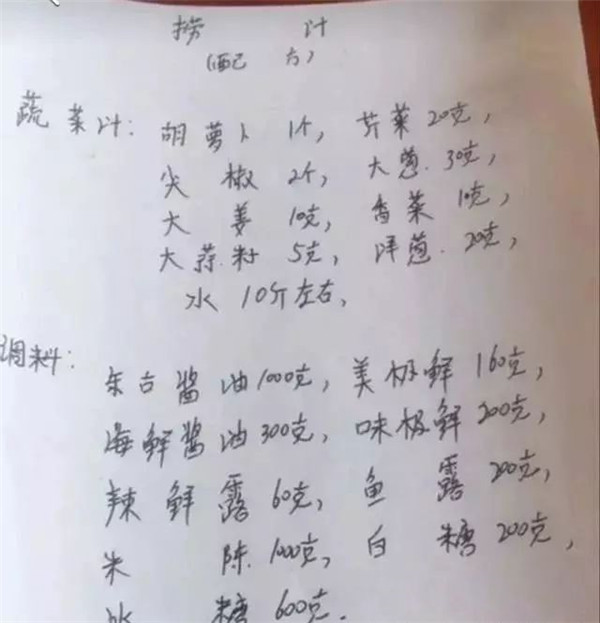 捞 汁
(配 方)
蔬菜汁: 胡萝卜 1个, 芹菜 20克,
尖椒 2个, 大葱 30克,
大姜 10克, 香菜 10克,
大蒜籽 5克, 洋葱 20克,
水 10斤左右,
调料: 东古酱油 1000克, 美极鲜 160克,
海鲜酱油 300克, 味极鲜 200克,
辣鲜露 60克, 鱼露 200克,
朱陈 1000克, 白糖 200克,
冰糖 600克.